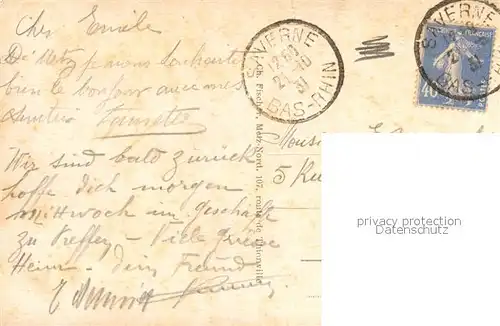 Cher Emile
De Metz je vous souhaite
bien le bonjour avec mes
Amitiés
Wir sind bald zurück
hoffe dich morgen
mittwoch im Geschäft
zu treffen - Viele Grüsse
Heim - dein Freund
SAVERNE
12 30
20 - 10
31
BAS-RHIN
SAVERNE
31
BAS-RHIN
40
J. Ch. Fischer, Metz-Nord, 107, route de Thionville
Monsieur
5 Rue
privacy protection
Datenschutz